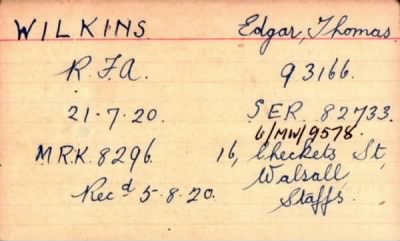 WILKINS Edgar, Thomas
R.F.A. 93166.
21-7-20. SER 82733.
6/MW/9578.
M.R.K. 8296. 16, Checkets St,
Walsall
Recd 5-8-20. Staffs.